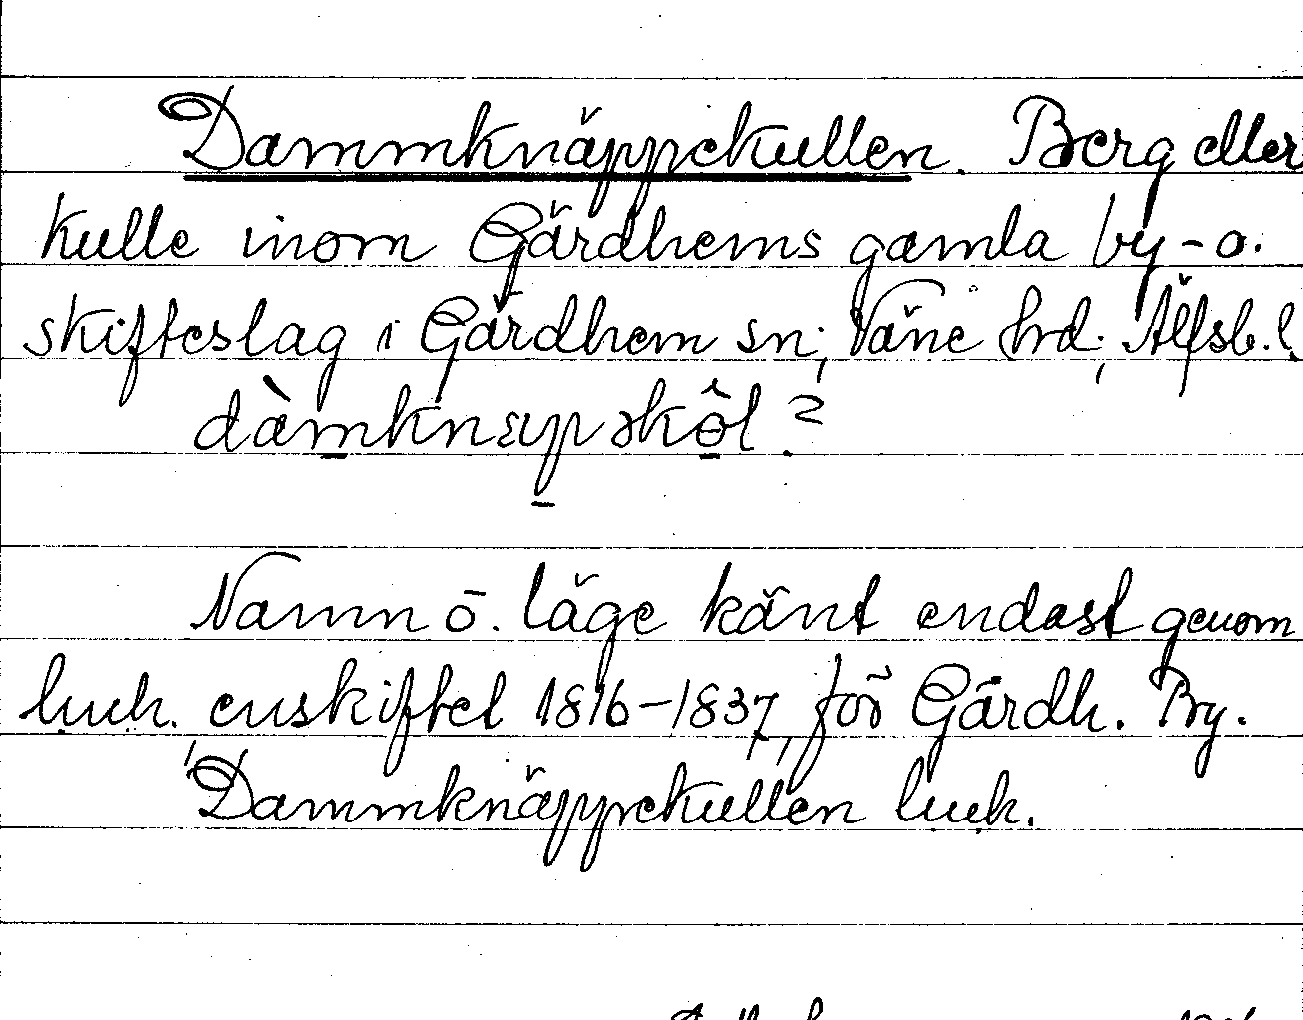 Dammknäppekullen. Berg eller
kulle inom Gärdhems gamla by- o.
skifteslag i Gärdhem sn; Väne hrd; Älfsb. l.
dàmknæpəkôl?
Namn o. läge känt endast genom
luuk. enskiftet 1816-1837, för Gärdh. By.
Dammknäppekullen luuk.